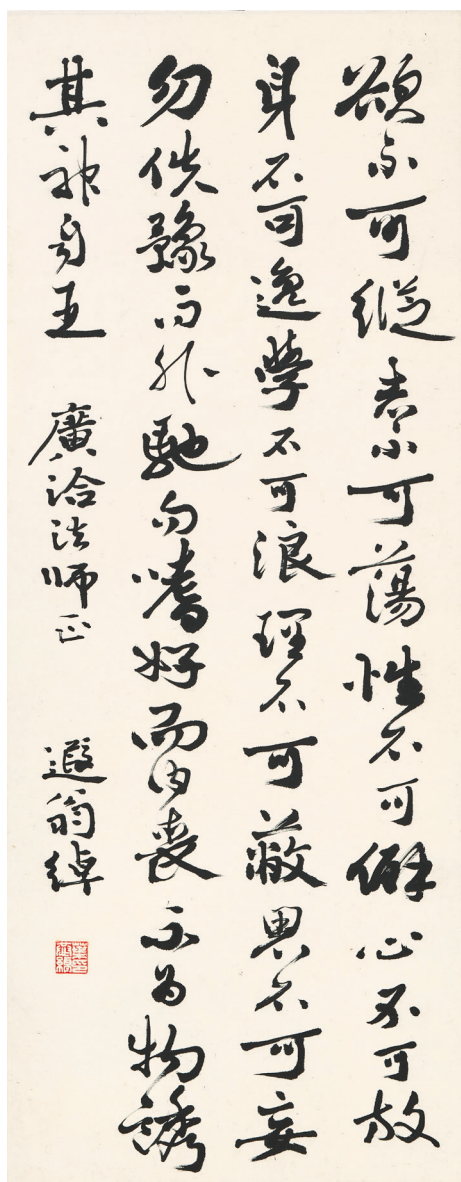 欲不可縱志不可蕩性不可僻心不可放
身不可逸學不可浪理不可蔽不可妄
勿佚豫而外馳勿嗜好而內喪不為物誘
其神自王 廣洽法師正 遐翁綽